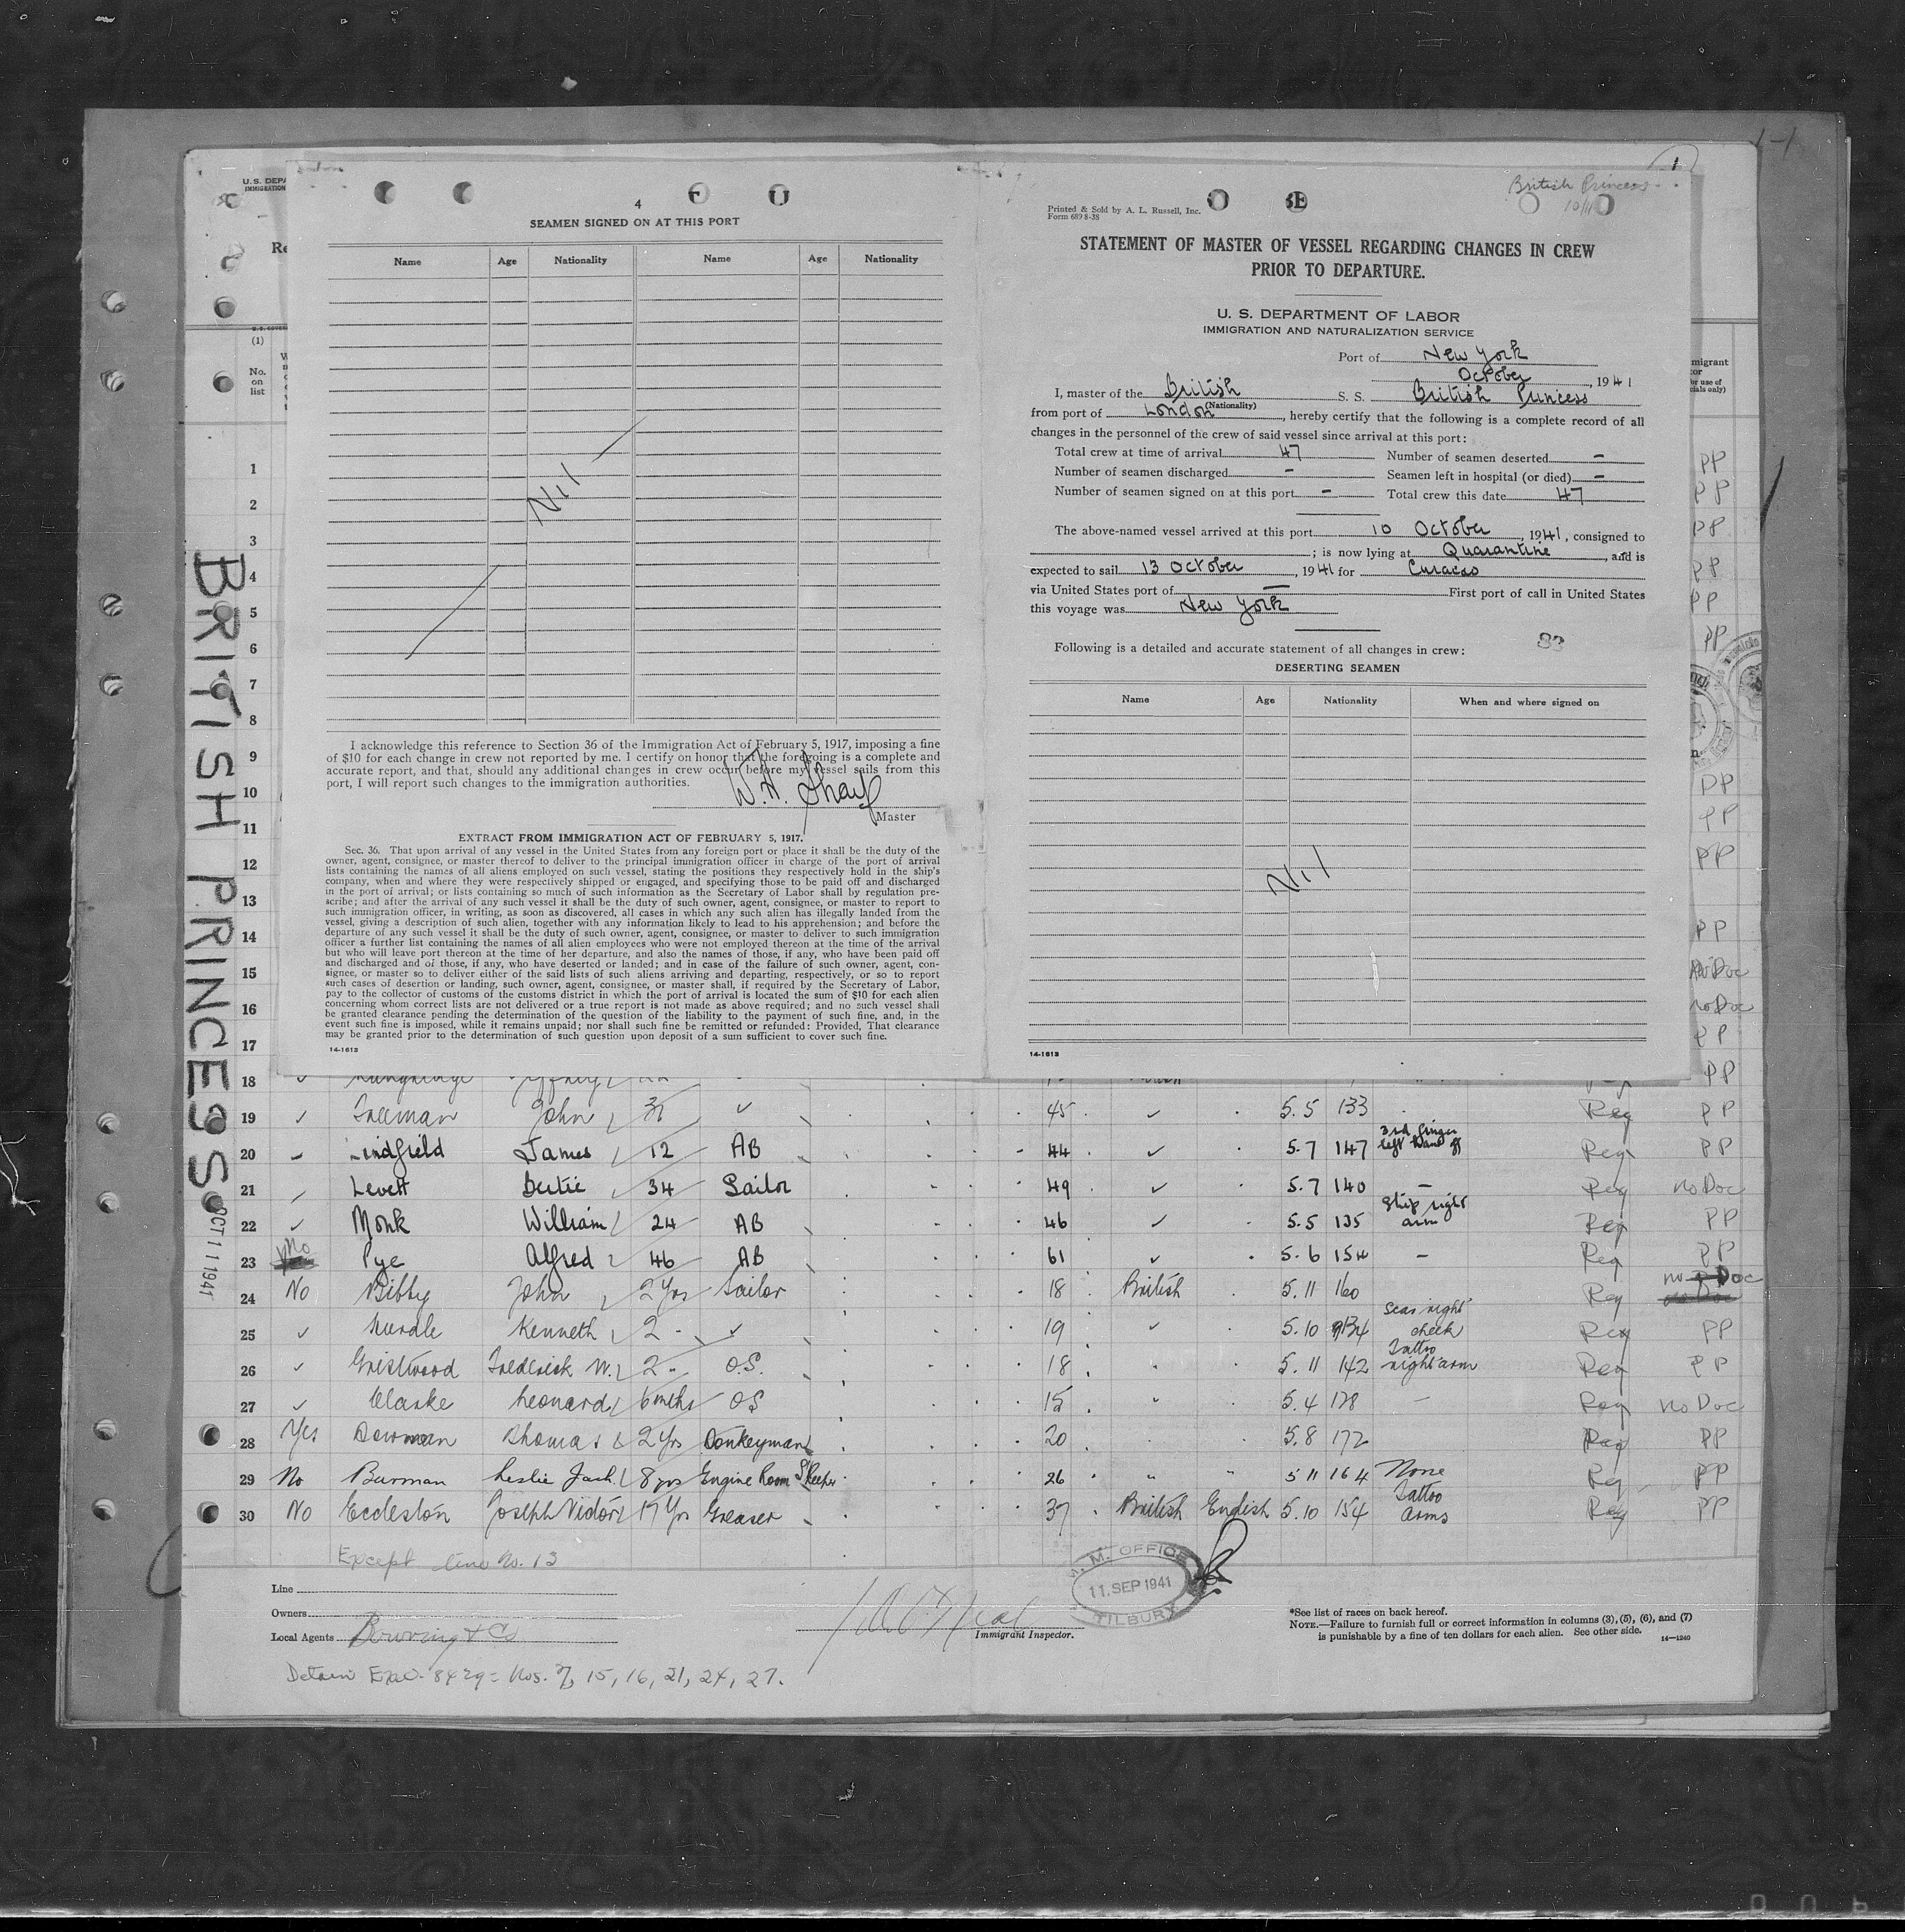 U. S. DEPA
IMMIGRATION
(1)
No.
on
list
BRITISH PRINCESS
OCT 11 1941
4
SEAMEN SIGNED ON AT THIS PORT
Name Age Nationality Name Age Nationality
Nil
I acknowledge this reference to Section 36 of the Immigration Act of February 5, 1917, imposing a fine
of $10 for each change in crew not reported by me. I certify on honor that the foregoing is a complete and
accurate report, and that, should any additional changes in crew occur before my vessel sails from this
port, I will report such changes to the immigration authorities.
Master
EXTRACT FROM IMMIGRATION ACT OF FEBRUARY 5, 1917.
Sec. 36. That upon arrival of any vessel in the United States from any foreign port or place it shall be the duty of the
owner, agent, consignee, or master thereof to deliver to the principal immigration officer in charge of the port of arrival
lists containing the names of all aliens employed on such vessel, stating the positions they respectively hold in the ship's
company, when and where they were respectively shipped or engaged, and specifying those to be paid off and discharged
in the port of arrival; or lists containing so much of such information as the Secretary of Labor shall by regulation pre-
scribe; and after the arrival of any such vessel it shall be the duty of such owner, agent, consignee, or master to report to
such immigration officer, in writing, as soon as discovered, all cases in which any such alien has illegally landed from the
vessel, giving a description of such alien, together with any information likely to lead to his apprehension; and before the
departure of any such vessel it shall be the duty of such owner, agent, consignee, or master to deliver to such immigration
officer a further list containing the names of all alien employees who were not employed thereon at the time of the arrival
but who will leave port thereon at the time of her departure, and also the names of those, if any, who have been paid off
and discharged and of those, if any, who have deserted or landed; and in case of the failure of such owner, agent, con-
signee, or master so to deliver either of the said lists of such aliens arriving and departing, respectively, or so to report
such cases of desertion or landing, such owner, agent, consignee, or master shall, if required by the Secretary of Labor,
pay to the collector of customs of the customs district in which the port of arrival is located the sum of $10 for each alien
concerning whom correct lists are not delivered or a true report is not made as above required; and no such vessel shall
be granted clearance pending the determination of the question of the liability to the payment of such fine, and, in the
event such fine is imposed, while it remains unpaid; nor shall such fine be remitted or refunded: Provided, That clearance
may be granted prior to the determination of such question upon deposit of a sum sufficient to cover such fine.
14-1613
British Princess
10/11
Printed & Sold by A. L. Russell, Inc.
Form 689 8-38
STATEMENT OF MASTER OF VESSEL REGARDING CHANGES IN CREW
PRIOR TO DEPARTURE.
U. S. DEPARTMENT OF LABOR
IMMIGRATION AND NATURALIZATION SERVICE
Port of New York
October, 1941
I, master of the British S. S. British Princess
(Nationality)
from port of London, hereby certify that the following is a complete record of all
changes in the personnel of the crew of said vessel since arrival at this port:
Total crew at time of arrival 47 Number of seamen deserted -
Number of seamen discharged - Seamen left in hospital (or died) -
Number of seamen signed on at this port - Total crew this date 47
The above-named vessel arrived at this port 10 October, 1941, consigned to
; is now lying at Quarantine, and is
expected to sail 13 October, 1941 for Curacao
via United States port of — First port of call in United States
this voyage was New York
Following is a detailed and accurate statement of all changes in crew: 83
DESERTING SEAMEN
Name Age Nationality When and where signed on
Nil
14-1613
1 PP
2 PP
3 PP
4 PP
5 PP
6 PP
7
8
9
10 PP
11 PP
12 PP
13
14 PP
15 No Doc
16 no Doc
17 PP
18 PP
19 ✓ Freeman John 31 ✓ 45 ✓ 5.5 133 Reg PP
20 Lindfield James 12 AB 44 ✓ 5.7 147 3rd finger left hand off Reg PP
21 Levett Bertie 34 Sailor 49 ✓ 5.7 140 - Reg no Doc
22 ✓ Monk William 24 AB 46 ✓ 5.5 135 Ship right arm Reg PP
23 No Pye Alfred 46 AB 61 ✓ 5.6 154 - Reg PP
24 No Bibby John 2 Yrs Sailor 18 British 5.11 160 Reg no Doc
25 ✓ Kenneth 2 ✓ 19 ✓ 5.10 134 Scar right cheek Reg PP
26 ✓ Gristwood Frederick W. 2 " O.S. 18 " 5.11 142 Tattoo right arm Reg PP
27 ✓ Clarke Leonard 6 mths OS 15 " 5.4 128 - Reg no Doc
28 Yes Bowman Thomas 2 Yrs Donkeyman 20 5.8 172 Reg PP
29 No Burman Leslie Jack 8 yrs Engine Room S'Keeper 26 " " 5 11 164 None Reg PP
30 No Eccleston Joseph Victor 17 Yrs Greaser 37 British English 5.10 154 Tattoo arms Reg PP
Except line No. 13
Line
Owners
Local Agents Bowring & Co
Immigrant Inspector.
M. M. OFFICE
11. SEP 1941
TILBURY
*See list of races on back hereof.
NOTE.—Failure to furnish full or correct information in columns (3), (5), (6), and (7)
is punishable by a fine of ten dollars for each alien. See other side.
14—1240
Detain Exec. 8429 = Nos. 7, 15, 16, 21, 24, 27.